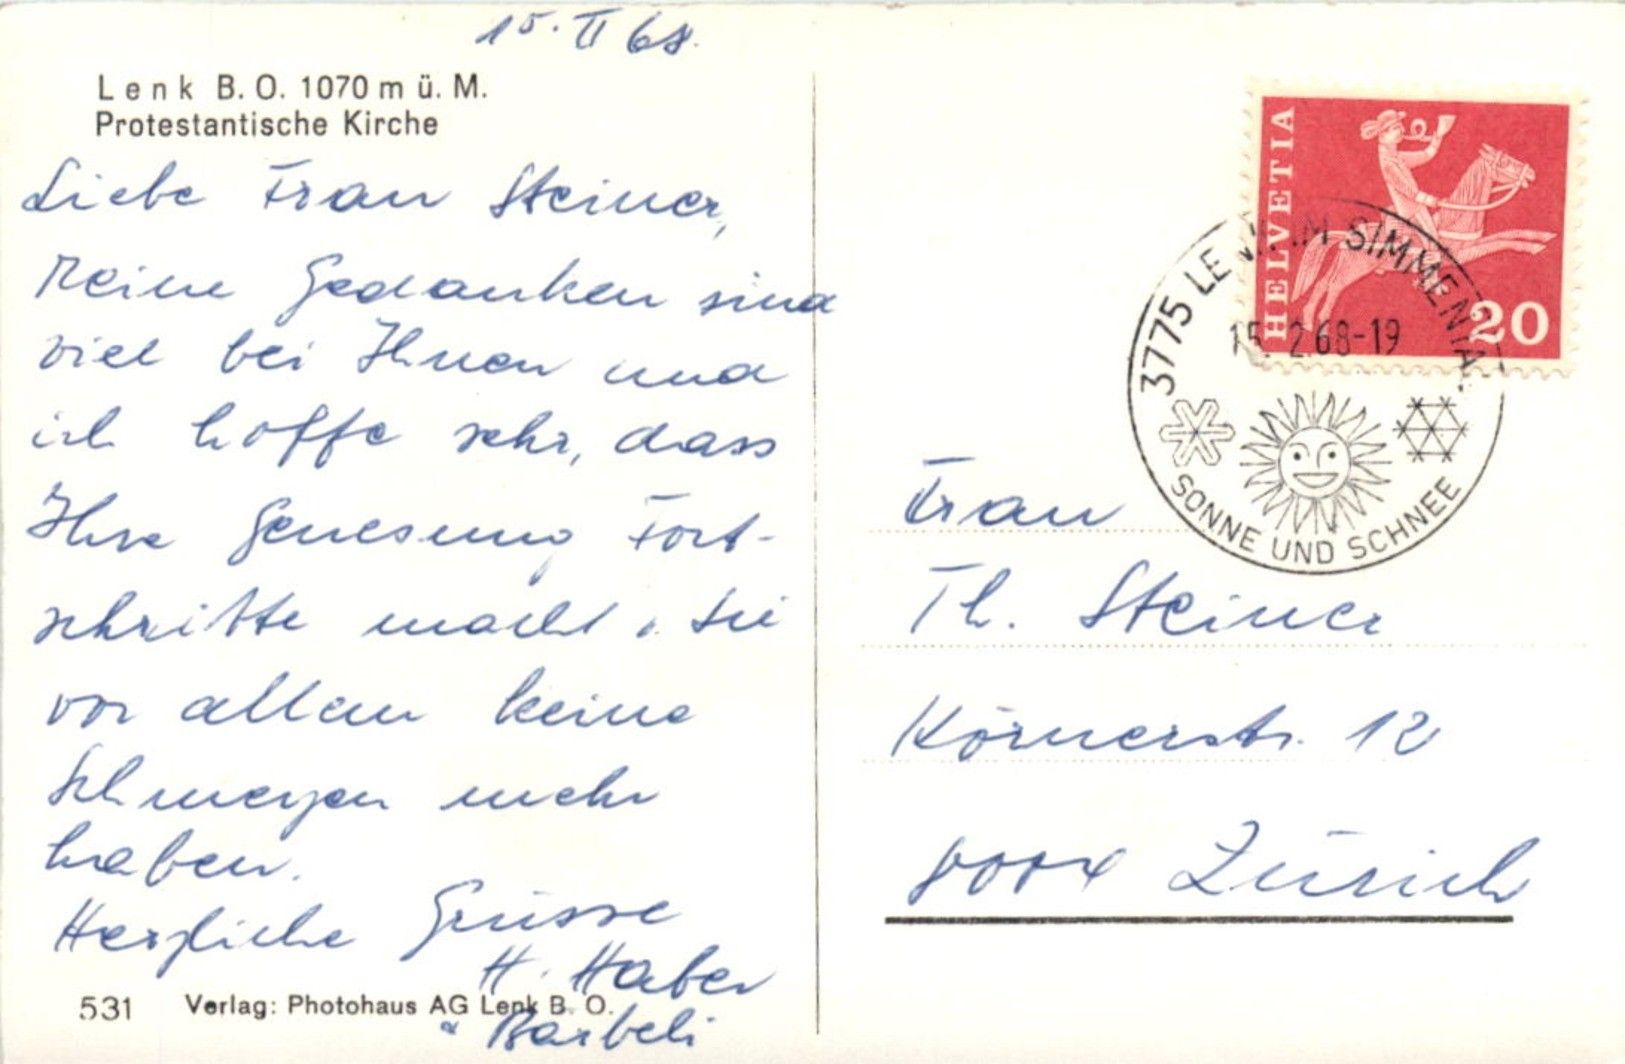 15. II 68.
Lenk B.O. 1070 m ü. M.
Protestantische Kirche
Liebe Frau Steiner,
Meine Gedanken sind
viel bei Ihnen und
ich hoffe sehr, dass
Ihre Genesung Fort-
schritte macht, Sie
vor allem keine
Schmerzen mehr
haben.
Herzliche Grüsse
H. Haber
& Barbeli
531 Verlag: Photohaus AG Lenk B. O.
HELVETIA
20
3775 LENK IM SIMMENTAL
15. 2.68-19
SONNE UND SCHNEE
Frau
Th. Steiner
Körnerstr. 12
8004 Zürich